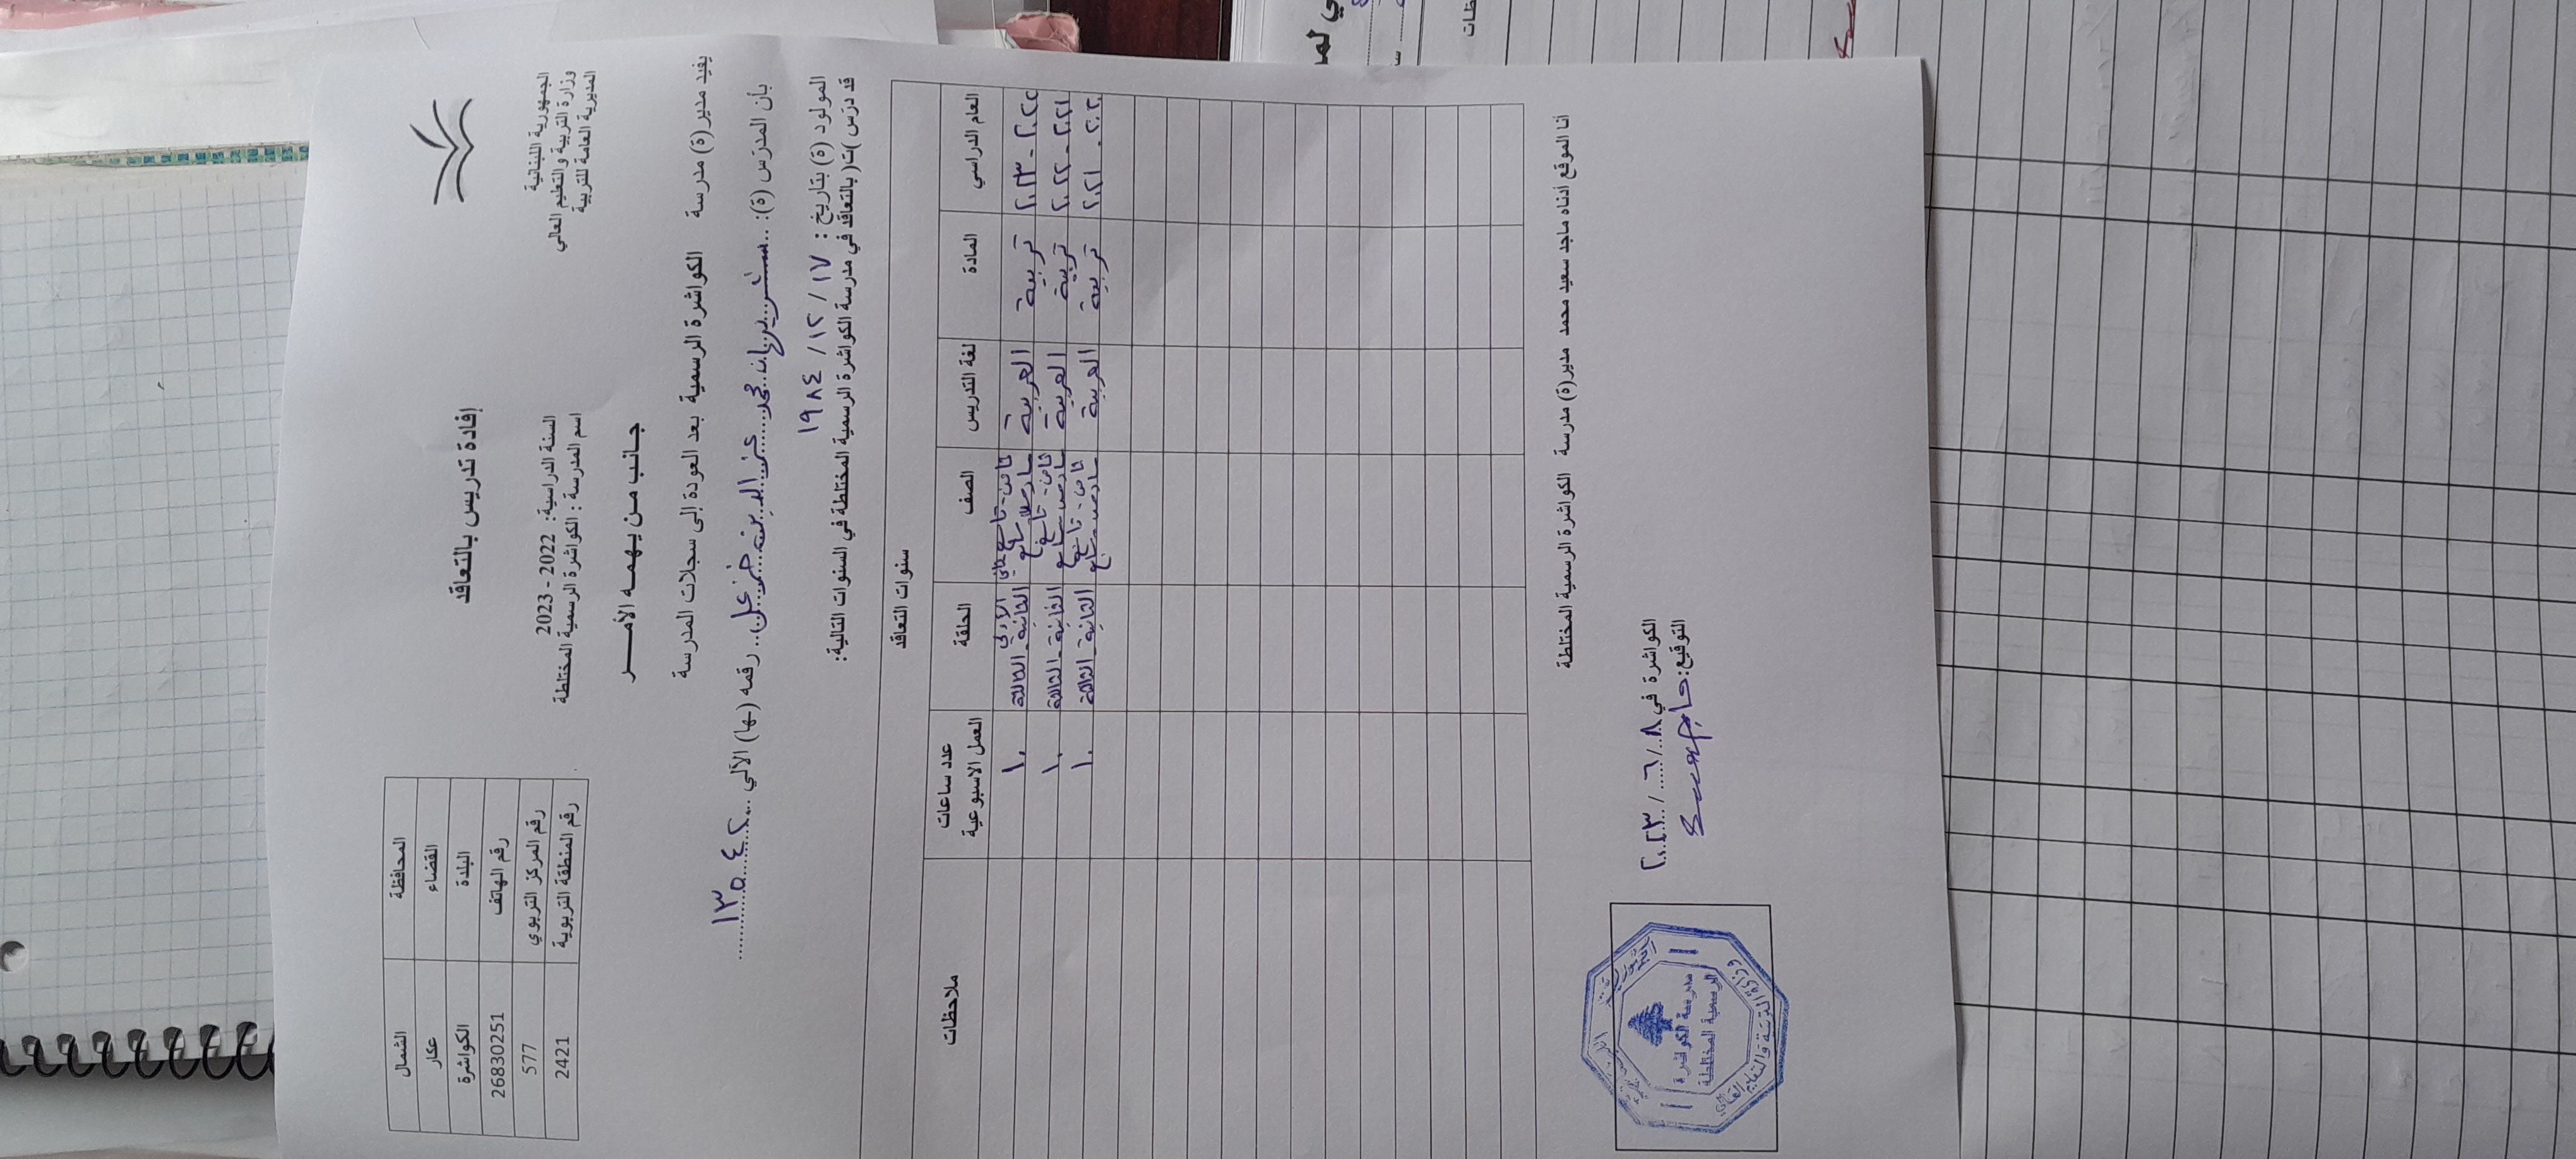 الجمهورية اللبنانية
وزارة التربية والتعليم العالي
المديرية العامة للتربية
إفادة تدريس بالتعاقد
السنة الدراسية: 2022 - 2023
اسم المدرسة : الكواشرة الرسمية المختلطة
المحافظة الشمال
القضاء عكار
البلدة الكواشرة
رقم الهاتف 26830251
رقم المركز التربوي 577
رقم المنطقة التربوية 2421
جـانـب مـن يـهـمـه الأمـــر
يفيد مدير(ة) مدرسة الكواشرة الرسمية بعد العودة إلى سجلات المدرسة
بأن المدرّس (ة): شريهان محمد عز الدين خزعل رقمه (ها) الآلي ١٣٥٤٢
المولود (ة) بتاريخ : ١٧ / ١٢ / ١٩٨٤
قد درّس )ت( بالتعاقد في مدرسة الكواشرة الرسمية المختلطة في السنوات التالية:
سنوات التعاقد
العام الدراسي المادة لغة التدريس الصف الحلقة عدد ساعات العمل الاسبوعية ملاحظات
٢٠٢٢ - ٢٠٢٣ تربية العربية ثامن - تاسع سادس سابع الأولى الثانية - الثالثة ١٠
٢٠٢١ - ٢٠٢٢ تربية العربية ثامن - تاسع سادس سابع الثانية - الثالثة ١٠
٢٠٢٠ - ٢٠٢١ تربية العربية ثامن - تاسع سادس - سابع الثانية - الثالثة ١٠
أنا الموقع أدناه ماجد سعيد محمد مدير(ة) مدرسة الكواشرة الرسمية المختلطة
الكواشرة في ٨ / ٦ / ٢٠٢٣
التوقيع:
الجمهورية اللبنانية
مدرسة الكواشرة
الرسمية المختلطة
وزارة التربية والتعليم العالي